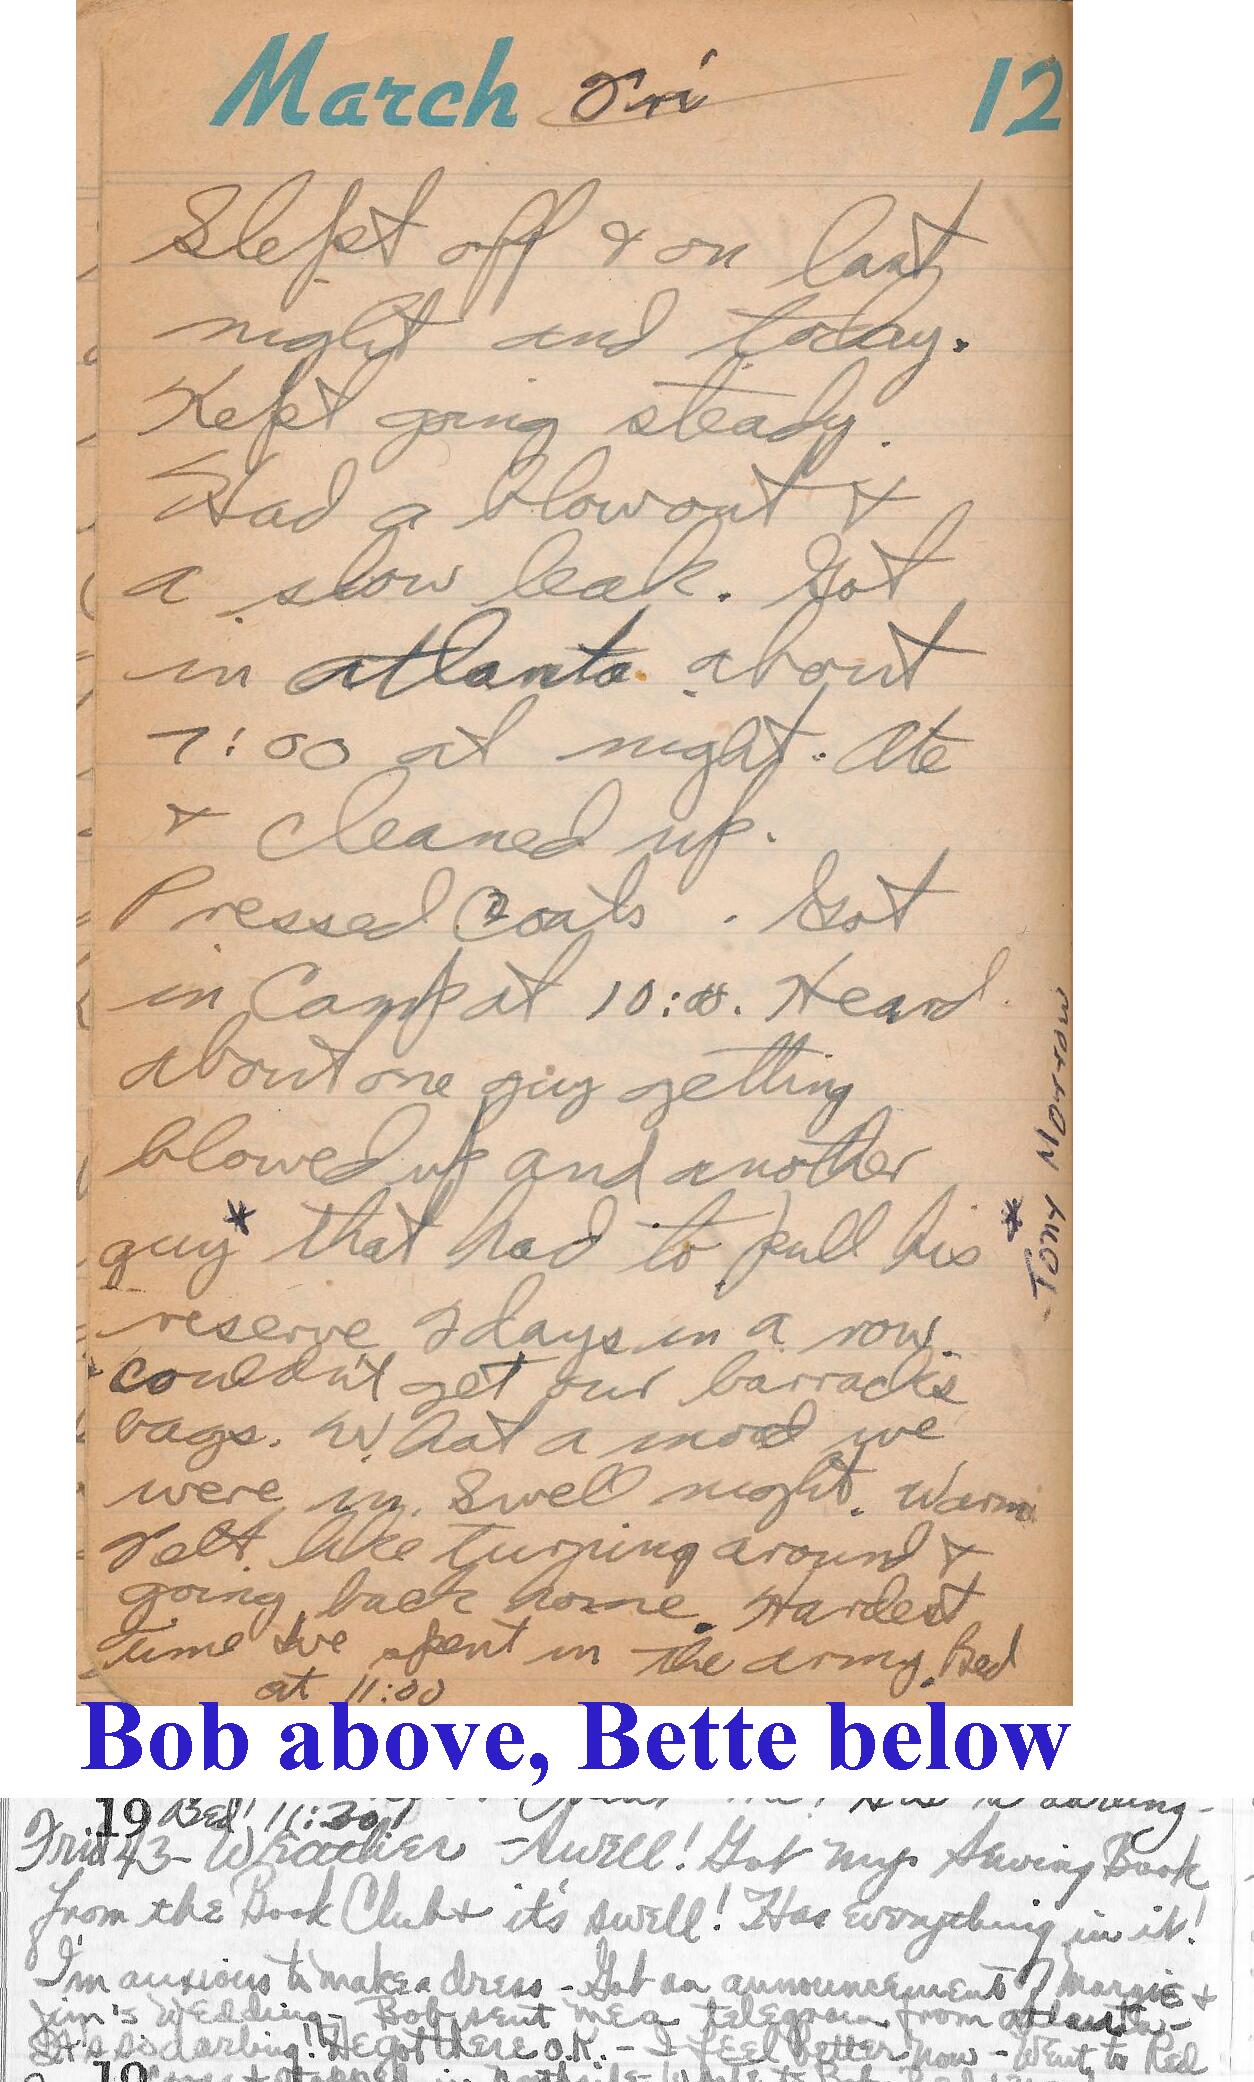 March Fri 12
Slept off & on last
night and today.
Kept going steady.
Had a blowout &
a slow leak. Got
in Atlanta about
7:00 at night. Ate
& cleaned up.
Pressed 2 coats. Got
in Camp at 10:00. Heard
about one guy getting
blowed up and another
guy* that had to pull his
*Tony Morrow
reserve 2 days in a row.
Couldn't get our barracks
bags. What a mood we
were in. Swell night. Warm
Felt like turning around &
going back home. Hardest
time I've spent in the army. Bed
at 11:00
Bob above, Bette below
19 Bed! 11:30! darling-
Fri 43- Weather - swell! Got my Sewing Book
from the Book Club & it's swell! Has everything in it!
I'm anxious to make a dress - Got an announcement of Margie &
Jim's Wedding - Bob sent me a telegram from Atlanta -
It's so darling! He got there O.K. - I feel better now - Went to Red
19 Cross & stopped in